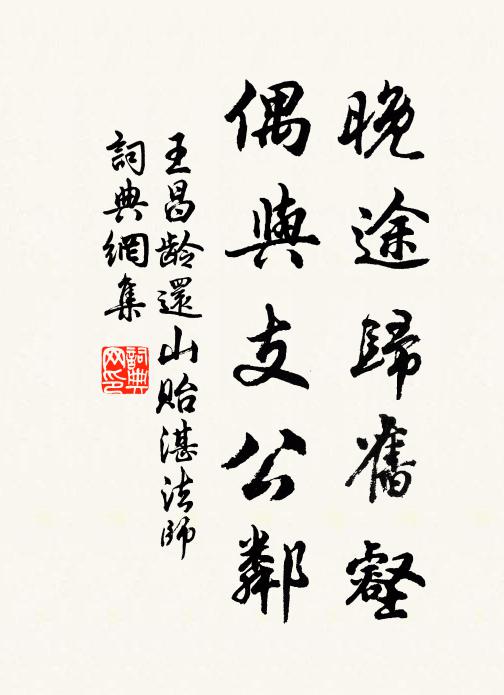 晚途歸舊壑
偶與支公鄰
王昌齡還山貽湛法師
詞典網集
詞典网印